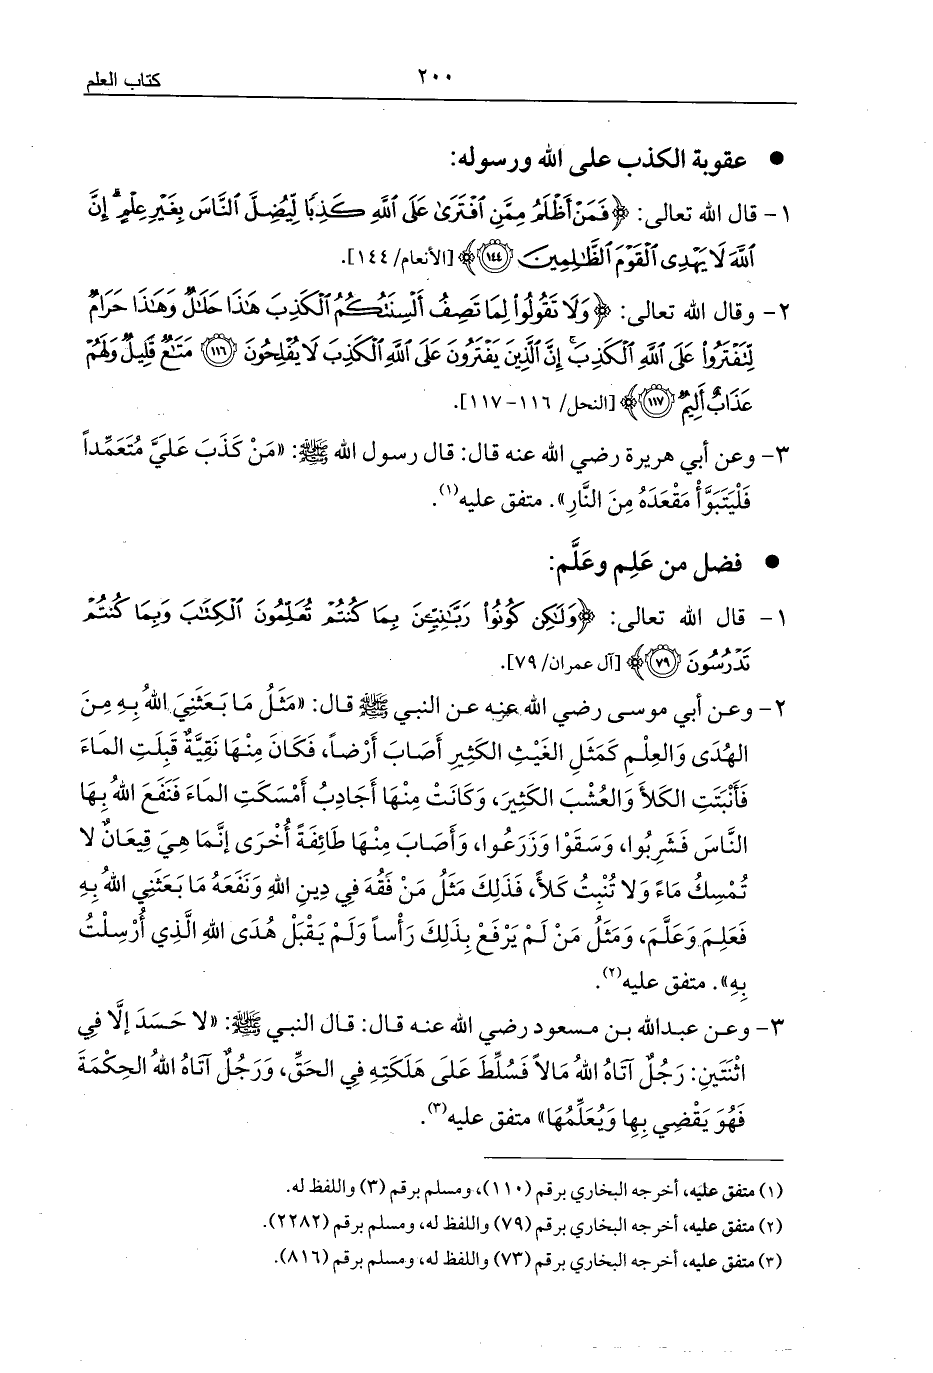 كتاب العلم
٢٠٠
● عقوبة الكذب على الله ورسوله:
١- قال الله تعالى: ﴿فَمَنْ أَظْلَمُ مِمَّنِ ٱفْتَرَىٰ عَلَى ٱللَّهِ كَذِبًا لِّيُضِلَّ ٱلنَّاسَ بِغَيْرِ عِلْمٍ ۗ إِنَّ
ٱللَّهَ لَا يَهْدِى ٱلْقَوْمَ ٱلظَّٰلِمِينَ ١٤٤﴾ [الأنعام/ ١٤٤].
٢- وقال الله تعالى: ﴿وَلَا تَقُولُوا۟ لِمَا تَصِفُ أَلْسِنَتُكُمُ ٱلْكَذِبَ هَٰذَا حَلَٰلٌ وَهَٰذَا حَرَامٌ
لِّتَفْتَرُوا۟ عَلَى ٱللَّهِ ٱلْكَذِبَ ۚ إِنَّ ٱلَّذِينَ يَفْتَرُونَ عَلَى ٱللَّهِ ٱلْكَذِبَ لَا يُفْلِحُونَ ١١٦ مَتَٰعٌ قَلِيلٌ وَلَهُمْ
عَذَابٌ أَلِيمٌ ١١٧﴾ [النحل/ ١١٦-١١٧].
٣- وعن أبي هريرة رضي الله عنه قال: قال رسول الله ﷺ: «مَنْ كَذَبَ عَلَيَّ مُتَعَمِّداً
فَلْيَتَبَوَّأْ مَقْعَدَهُ مِنَ النَّارِ». متفق عليه(١).
● فضل من عَلِم وعَلَّم:
١- قال الله تعالى: ﴿وَلَٰكِن كُونُوا۟ رَبَّٰنِيِّۦنَ بِمَا كُنتُمْ تُعَلِّمُونَ ٱلْكِتَٰبَ وَبِمَا كُنتُمْ
تَدْرُسُونَ ٧٩﴾ [آل عمران/ ٧٩].
٢- وعن أبي موسى رضي الله عنه عن النبي ﷺ قال: «مَثَلُ مَا بَعَثَنِيَ اللهُ بِهِ مِنَ
الهُدَى وَالعِلْمِ كَمَثَلِ الغَيْثِ الكَثِيرِ أَصَابَ أَرْضاً، فَكَانَ مِنْهَا نَقِيَّةٌ قَبِلَتِ المَاءَ
فَأَنْبَتَتِ الكَلأَ وَالعُشْبَ الكَثِيرَ، وَكَانَتْ مِنْهَا أَجَادِبُ أَمْسَكَتِ المَاءَ فَنَفَعَ اللهُ بِهَا
النَّاسَ فَشَرِبُوا، وَسَقَوْا وَزَرَعُوا، وَأَصَابَ مِنْهَا طَائِفَةً أُخْرَى إنَّمَا هِيَ قِيعَانٌ لا
تُمْسِكُ مَاءً وَلا تُنْبِتُ كَلأً، فَذَلِكَ مَثَلُ مَنْ فَقُهَ فِي دِينِ اللهِ وَنَفَعَهُ مَا بَعَثَنِي اللهُ بِهِ
فَعَلِمَ وَعَلَّمَ، وَمَثَلُ مَنْ لَمْ يَرْفَعْ بِذَلِكَ رَأْساً وَلَمْ يَقْبَلْ هُدَى اللهِ الَّذِي أُرْسِلْتُ
بِهِ». متفق عليه(٢).
٣- وعن عبدالله بن مسعود رضي الله عنه قال: قال النبي ﷺ: «لا حَسَدَ إلَّا فِي
اثْنَتَينِ: رَجُلٌ آتَاهُ اللهُ مَالاً فَسُلِّطَ عَلَى هَلَكَتِهِ فِي الحَقِّ، وَرَجُلٌ آتَاهُ اللهُ الحِكْمَةَ
فَهُوَ يَقْضِي بِها وَيُعَلِّمُهَا» متفق عليه(٣).
(١) متفق عليه، أخرجه البخاري برقم (١١٠)، ومسلم برقم (٣) واللفظ له.
(٢) متفق عليه، أخرجه البخاري برقم (٧٩) واللفظ له، ومسلم برقم (٢٢٨٢).
(٣) متفق عليه، أخرجه البخاري برقم (٧٣) واللفظ له، ومسلم برقم (٨١٦).